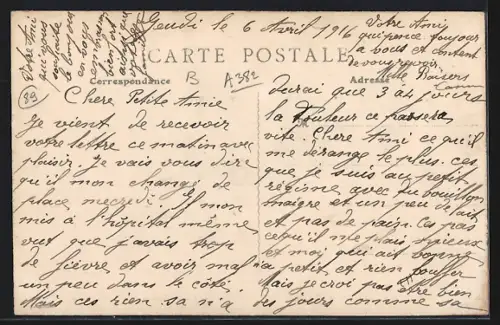 Jeudi le 6 Avril 1916
CARTE POSTALE
Correspondance
B
A 382
Adresse
89
Chere Petite Amie
Je vient de recevoir
votre lettre ce matin avec
plaisir. Je vais vous dire
qu'il mon changé de
place mecredi. Il mon
mis à l'hôpital même
vut que j'avais trop
de fièvre et avoir mal
un peu dans le côté.
Mais ces rien sa n'a
durai que 3 a 4 jours
la Douleur ce passera
vite. Chere Ami ce qu'il
me dérange le plus. ces
que je suis au petit
régime avec du bouillon
maigre et un peu de lait
et pas de pain. Ces pas
ce qu'il me plais
et moi qui ait bonne
a petit et rien
Mais je croi pas être bien
des jours comme sa
Votre Ami
qui pense toujour
a vous et content
de vous revoir.
Mille Baisers
Votre Ami
qui vous
souhaite
le bonjour